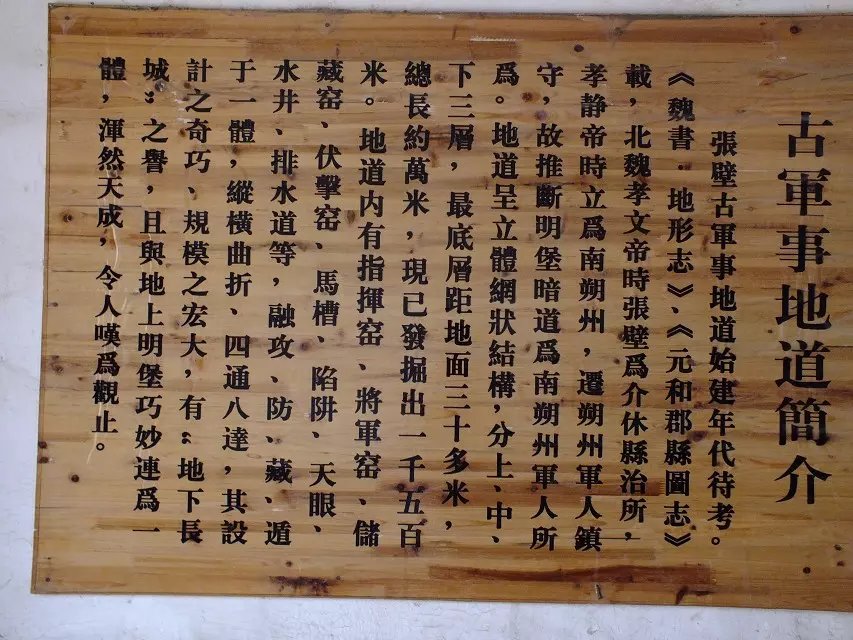 古軍事地道簡介
張壁古軍事地道始建年代待考。
《魏書·地形志》、《元和郡縣圖志》
載，北魏孝文帝時張壁爲介休縣治所，
孝静帝時立爲南朔州，遷朔州軍人鎮
守，故推斷明堡暗道爲南朔州軍人所
爲。地道呈立體網狀結構，分上、中、
下三層，最底層距地面三十多米，
總長約萬米，現已發掘出一千五百
米。地道内有指揮窑、將軍窑、儲
藏窑、伏擊窑、馬槽、陷阱、天眼、
水井、排水道等，融攻、防、藏、遁
于一體，縱橫曲折、四通八達，其設
計之奇巧、規模之宏大，有“地下長
城”之譽，且與地上明堡巧妙連爲一
體，渾然天成，令人嘆爲觀止。